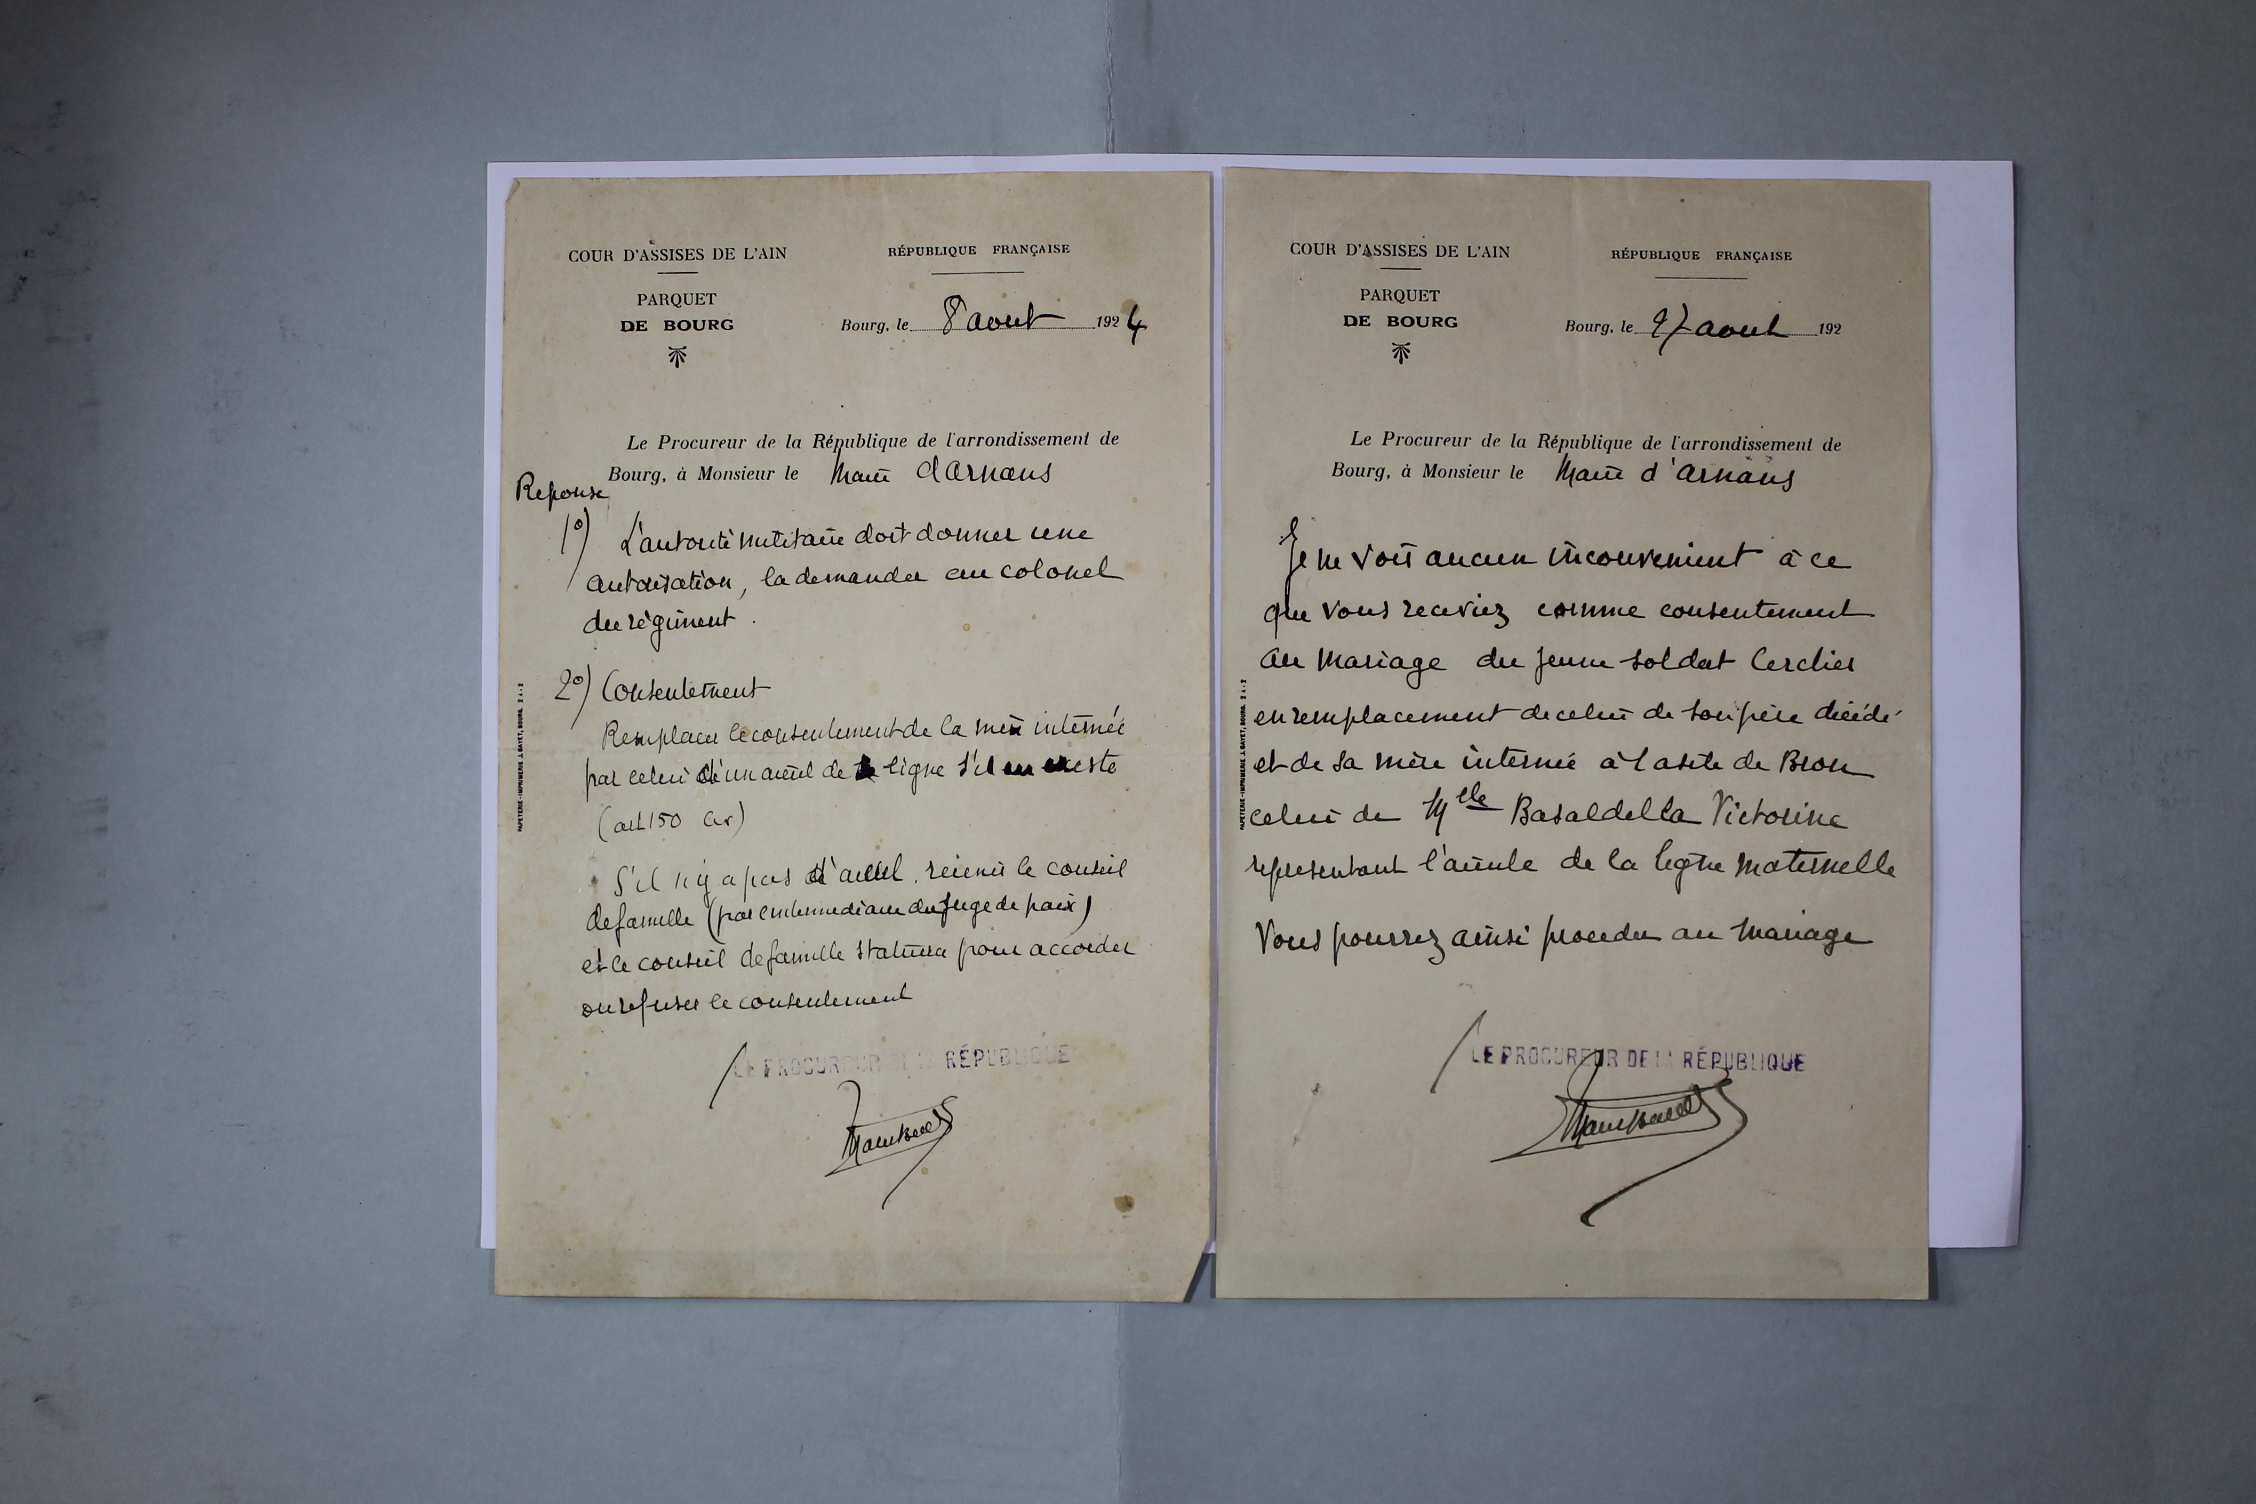 COUR D'ASSISES DE L'AIN
RÉPUBLIQUE FRANÇAISE
PARQUET
DE BOURG
Bourg, le 8 aout 1924
Le Procureur de la République de l'arrondissement de
Bourg, à Monsieur le Maire d'Arnans
Reponse
1°) L'autorité militaire doit donner une
autorisation, la demander au colonel
du régiment.
2°) Consentement
Remplacer le consentement de la mère internée
par celui d'un aieul de ligne s'il en existe
(art 150 Civ)
S'il n'y a pas d'aieul, réunir le conseil
de famille (par l'intermediaire du juge de paix)
et le conseil de famille statuera pour accorder
ou refuser le consentement
LE PROCUREUR DE LA RÉPUBLIQUE
PAPETERIE-IMPRIMERIE J. GAYET, BOURG. 24-2
COUR D'ASSISES DE L'AIN
RÉPUBLIQUE FRANÇAISE
PARQUET
DE BOURG
Bourg, le 27 aout 192
Le Procureur de la République de l'arrondissement de
Bourg, à Monsieur le Maire d'Arnans
Je ne vois aucun inconvenient à ce
que vous receviez comme consentement
au mariage du jeune soldat Cerclier
en remplacement de celui de son père décédé
et de sa mère internée à l'asile de Bron
celui de Mlle Basaldella Victorine
representant l'aieule de la ligne maternelle
Vous pourrez ainsi proceder au mariage
LE PROCUREUR DE LA RÉPUBLIQUE
PAPETERIE-IMPRIMERIE J. GAYET, BOURG. 24-2